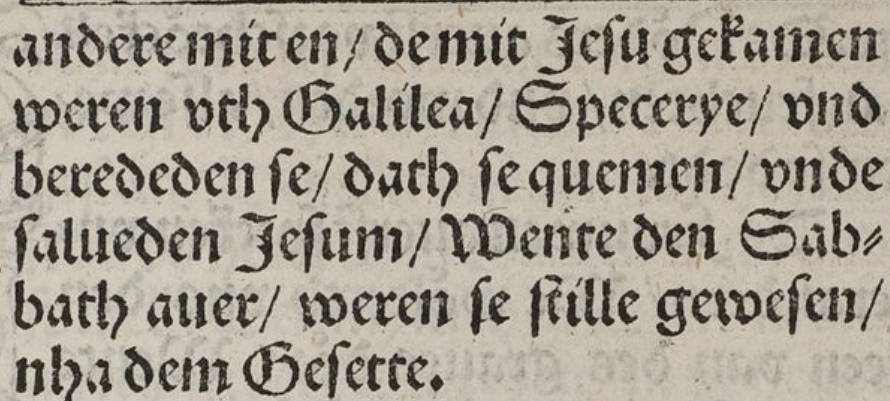 andere mit en/ de mit Jeſu gekamen
weren vth Galilea/ Specerye/ vnd
berededen ſe/ dath ſe quemen/ vnde
ſalueden Jeſum/ Wente den Sab⸗
bath auer/ weren ſe ſtille geweſen/
nha dem Geſette.